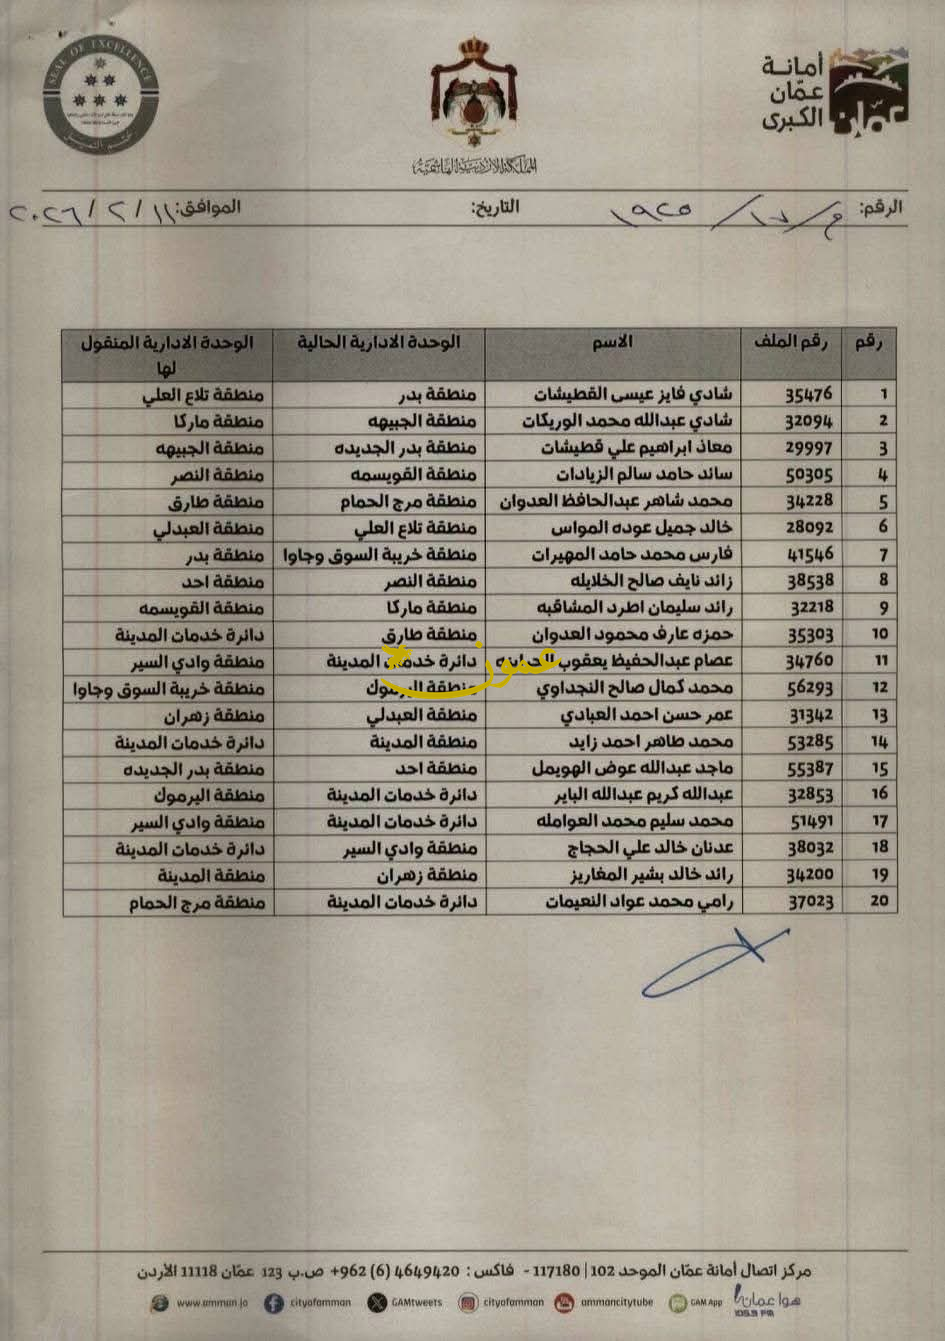 SEAL OF EXCELLENCE
ختم التميز
المملكة الأردنية الهاشمية
أمانة
عمّان
الكبرى
عمّان
الرقم: م/١٧/١٩٢٥ التاريخ: الموافق: ٢٠٢٦/٢/١١
رقم رقم الملف الاسم الوحدة الادارية الحالية الوحدة الادارية المنقول لها
1 35476 شادي فايز عيسى القطيشات منطقة بدر منطقة تلاع العلي
2 32094 شادي عبدالله محمد الوريكات منطقة الجبيهه منطقة ماركا
3 29997 معاذ ابراهيم علي قطيشات منطقة بدر الجديده منطقة الجبيهه
4 50305 سائد حامد سالم الزيادات منطقة القويسمه منطقة النصر
5 34228 محمد شاهر عبدالحافظ العدوان منطقة مرج الحمام منطقة طارق
6 28092 خالد جميل عوده المواس منطقة تلاع العلي منطقة العبدلي
7 41546 فارس محمد حامد المهيرات منطقة خريبة السوق وجاوا منطقة بدر
8 38538 زائد نايف صالح الخلايله منطقة النصر منطقة احد
9 32218 رائد سليمان اطرد المشاقبه منطقة ماركا منطقة القويسمه
10 35303 حمزه عارف محمود العدوان منطقة طارق دائرة خدمات المدينة
11 34760 عصام عبدالحفيظ يعقوب دائرة خدمات المدينة منطقة وادي السير
12 56293 محمد كمال صالح النجداوي منطقة اليرموك منطقة خريبة السوق وجاوا
13 31342 عمر حسن احمد العبادي منطقة العبدلي منطقة زهران
14 53285 محمد طاهر احمد زايد منطقة المدينة دائرة خدمات المدينة
15 55387 ماجد عبدالله عوض الهويمل منطقة احد منطقة بدر الجديده
16 32853 عبدالله كريم عبدالله الباير دائرة خدمات المدينة منطقة اليرموك
17 51491 محمد سليم محمد العوامله دائرة خدمات المدينة منطقة وادي السير
18 38032 عدنان خالد علي الحجاج منطقة وادي السير دائرة خدمات المدينة
19 34200 رائد خالد بشير المغاريز منطقة زهران منطقة المدينة
20 37023 رامي محمد عواد النعيمات دائرة خدمات المدينة منطقة مرج الحمام
عمون
مركز اتصال أمانة عمّان الموحد 102 | 117180 - فاكس : 4649420 (6) 962+ ص.ب 123 عمّان 11118 الأردن
www.amman.jo cityofamman GAMtweets cityofamman ammancitytube GAM App هوا عمان
105.9 FM